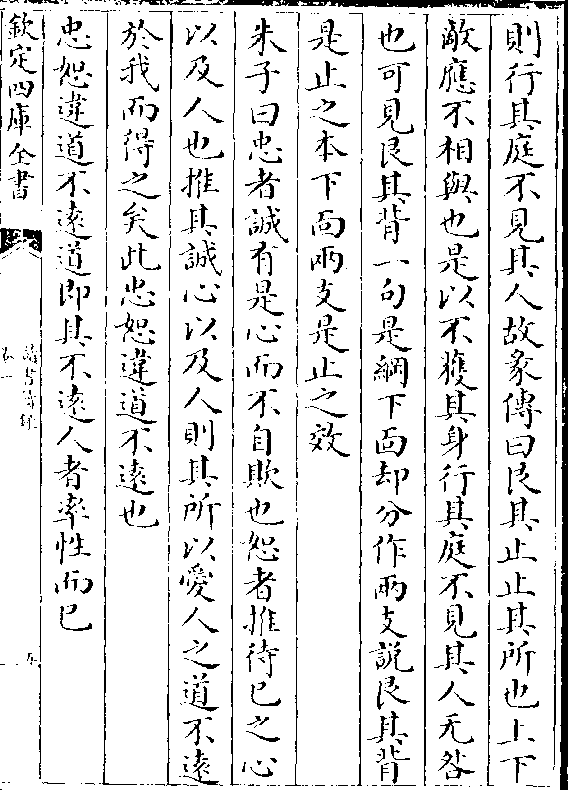 則行其庭不見其人故彖傳曰艮其止止其所也上下
敵應不相與也是以不獲其身行其庭不見其人无咎
也可見艮其背一句是綱下面却分作兩支説艮其背
是止之本下面兩支是止之效
朱子曰忠者誠有是心而不自欺也恕者推待已之心
以及人也推其誠心以及人則其所以愛人之道不遠
於我而得之矣此忠恕違道不遠也
忠恕違道不遠道即其不遠人者率性而已
欽定四庫全書
讀書劄記
卷一
五